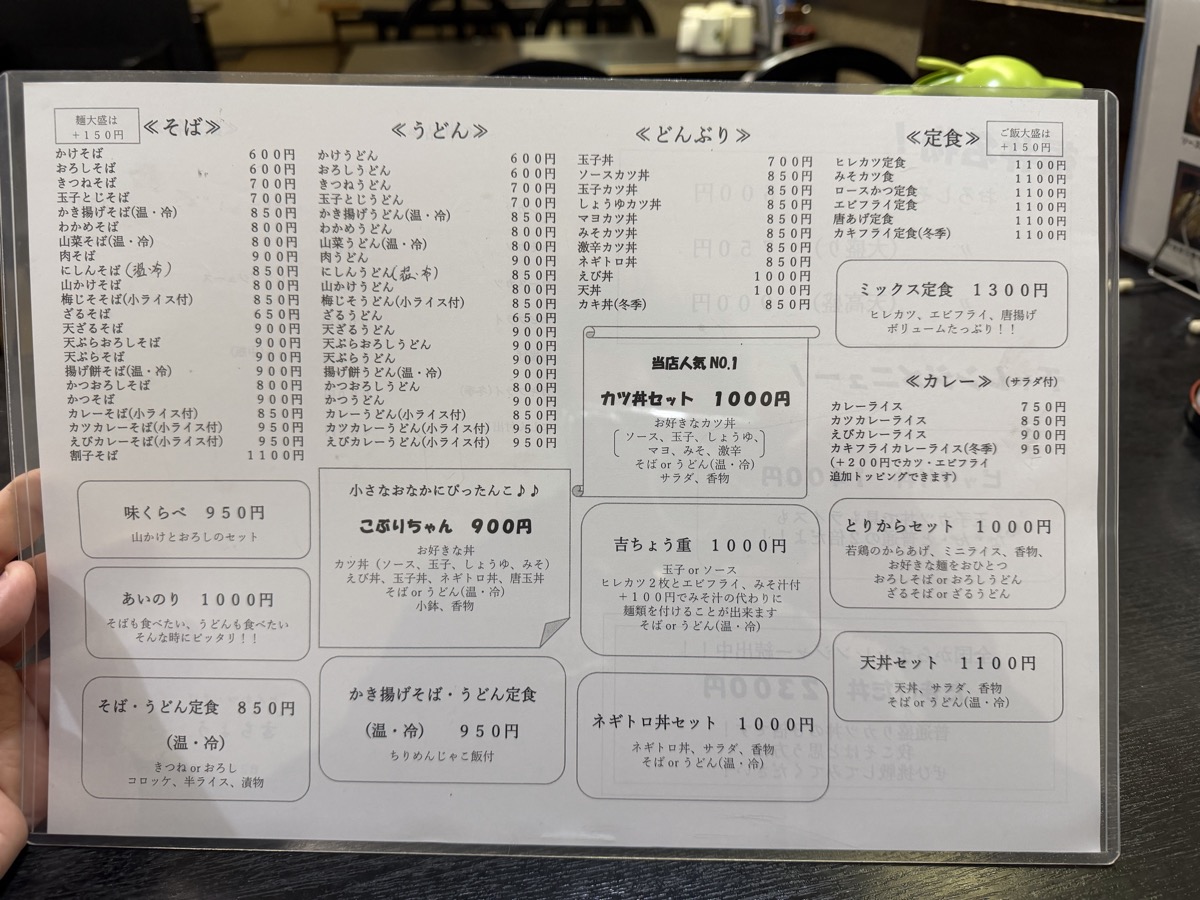 麺大盛は
＋１５０円
≪そば≫
かけそば ６００円
おろしそば ６００円
きつねそば ７００円
玉子とじそば ７００円
かき揚げそば(温・冷) ８５０円
わかめそば ８００円
山菜そば(温・冷) ８００円
肉そば ９００円
にしんそば ８５０円
山かけそば ８００円
梅じそそば(小ライス付) ８５０円
ざるそば ６５０円
天ざるそば ９００円
天ぷらおろしそば ９００円
天ぷらそば ９００円
揚げ餅そば(温・冷) ９００円
かつおろしそば ８００円
かつそば ９００円
カレーそば(小ライス付) ８５０円
カツカレーそば(小ライス付) ９５０円
えびカレーそば(小ライス付) ９５０円
割子そば １１００円
味くらべ ９５０円
山かけとおろしのセット
あいのり １０００円
そばも食べたい、うどんも食べたい
そんな時にピッタリ！！
そば・うどん定食 ８５０円
(温・冷)
きつね or おろし
コロッケ、半ライス、漬物
≪うどん≫
かけうどん ６００円
おろしうどん ６００円
きつねうどん ７００円
玉子とじうどん ７００円
かき揚げうどん(温・冷) ８５０円
わかめうどん ８００円
山菜うどん(温・冷) ８００円
肉うどん ９００円
にしんうどん ８５０円
山かけうどん ８００円
梅じそうどん(小ライス付) ８５０円
ざるうどん ６５０円
天ざるうどん ９００円
天ぷらおろしうどん ９００円
天ぷらうどん ９００円
揚げ餅うどん(温・冷) ９００円
かつおろしうどん ８００円
かつうどん ９００円
カレーうどん(小ライス付) ８５０円
カツカレーうどん(小ライス付) ９５０円
えびカレーうどん(小ライス付) ９５０円
小さなおなかにぴったんこ♪♪
こぶりちゃん ９００円
お好きな丼
カツ丼（ソース、玉子、しょうゆ、みそ）
えび丼、玉子丼、ネギトロ丼、唐玉丼
そば or うどん(温・冷)
小鉢、香物
かき揚げそば・うどん定食
(温・冷) ９５０円
ちりめんじゃこ飯付
≪どんぶり≫
玉子丼 ７００円
ソースカツ丼 ８５０円
玉子カツ丼 ８５０円
しょうゆカツ丼 ８５０円
マヨカツ丼 ８５０円
みそカツ丼 ８５０円
激辛カツ丼 ８５０円
ネギトロ丼 ８５０円
えび丼 １０００円
天丼 １０００円
カキ丼(冬季) ８５０円
当店人気 NO.1
カツ丼セット １０００円
お好きなカツ丼
ソース、玉子、しょうゆ、
マヨ、みそ、激辛
そば or うどん(温・冷)
サラダ、香物
吉ちょう重 １０００円
玉子 or ソース
ヒレカツ２枚とエビフライ、みそ汁付
＋１００円でみそ汁の代わりに
麺類を付けることが出来ます
そば or うどん(温・冷)
ネギトロ丼セット １０００円
ネギトロ丼、サラダ、香物
そば or うどん(温・冷)
≪定食≫
ご飯大盛は
＋１５０円
ヒレカツ定食 １１００円
みそカツ定食 １１００円
ロースかつ定食 １１００円
エビフライ定食 １１００円
唐あげ定食 １１００円
カキフライ定食(冬季) １１００円
ミックス定食 １３００円
ヒレカツ、エビフライ、唐揚げ
ボリュームたっぷり！！
≪カレー≫ (サラダ付)
カレーライス ７５０円
カツカレーライス ８５０円
えびカレーライス ９００円
カキフライカレーライス(冬季) ９５０円
(＋２００円でカツ・エビフライ
追加トッピングできます)
とりからセット １０００円
若鶏のからあげ、ミニライス、香物、
お好きな麺をおひとつ
おろしそば or おろしうどん
ざるそば or ざるうどん
天丼セット １１００円
天丼、サラダ、香物
そば or うどん(温・冷)